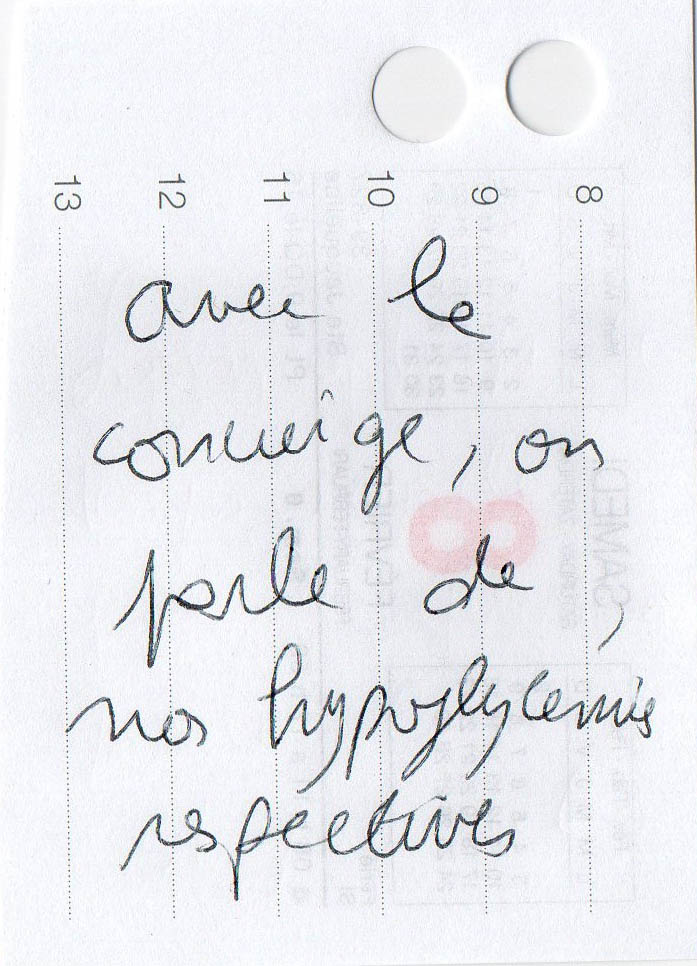 8
9
10
11
12
13
avec le
concierge, on
parle de
nos hypoglycémies
respectives